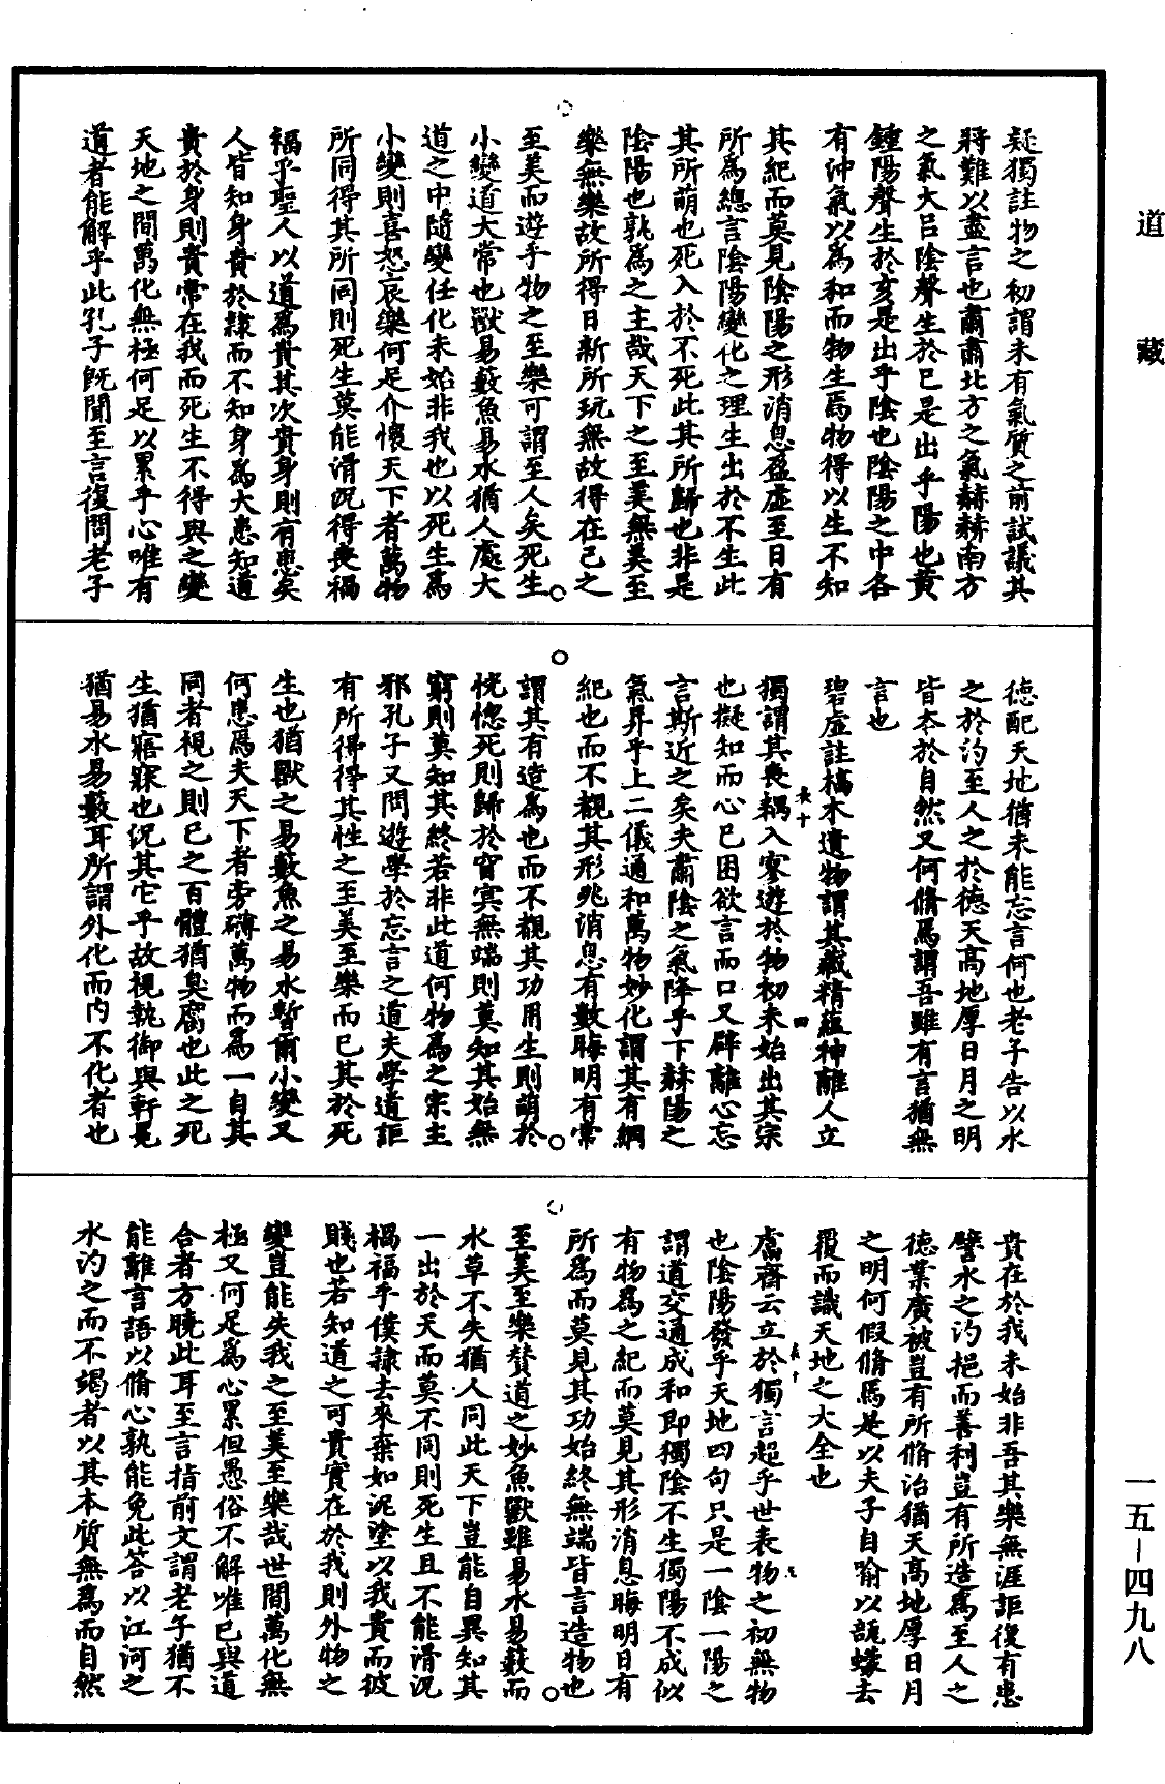 道藏
疑獨註物之初謂未有氣質之前試議其
將難以盡言也肅肅北方之氣赫赫南方
之氣大呂陰聲生於巳是出乎陽也黃
鍾陽聲生於亥是出乎陰也陰陽之中各
有沖氣以為和而物生焉物得以生不知
其紀而莫見陰陽之形消息盈虛至日有
所為總言陰陽變化之理生出於不生此
其所萌也死入於不死此其所歸也非是
陰陽也孰為之主哉天下之至美無美至
樂無樂故所得日新所玩無故得在己之
至美而遊乎物之至樂可謂至人矣死生
小變道大常也獸易藪魚易水猶人處大
道之中隨變任化未始非我也以死生為
小變則喜怒哀樂何足介懷天下者萬物
所同得其所同則死生莫能滑況得喪禍
福乎聖人以道為貴其次貴身則有患矣
人皆知身貴於隸而不知身為大患知道
貴於身則貴常在我而死生不得與之變
天地之間萬化無極何足以累乎心唯有
道者能解乎此孔子既聞至言復問老子
德配天地猶未能忘言何也老子告以水
之於汋至人之於德天高地厚日月之明
皆本於自然又何脩焉謂吾雖有言猶無
言也
碧虛註槁木遺物謂其藏精蘊神離人立
獨謂其喪耦入寥遊於物初未始出其宗
也擬知而心已困欲言而口又辟離心忘
言斯近之矣夫肅陰之氣降乎下赫陽之
氣昇乎上二儀通和萬物妙化謂其有綱
紀也而不覩其形兆消息有數晦明有常
謂其有造為也而不覩其功用生則萌於
恍惚死則歸於窅冥無端則莫知其始無
窮則莫知其終若非此道何物為之宗主
邪孔子又問遊學於忘言之道夫學道詎
有所得得其性之至美至樂而已其於死
生也猶獸之易藪魚之易水暫爾小變又
何患焉夫天下者旁礴萬物而為一自其
同者視之則已之百體猶臭腐也此之死
生猶寤寐也況其它乎故視執御與軒冕
猶易水易藪耳所謂外化而內不化者也
貴在於我未始非吾其樂無涯詎復有患
譬水之汋挹而善利豈有所造為至人之
德業廣被豈有所脩治猶天高地厚日月
之明何假脩焉是以夫子自喻以甕蠓去
覆而識天地之大全也
鬳齋云立於獨言超乎世表物之初無物
也陰陽發乎天地四句只是一陰一陽之
謂道交通成和即獨陰不生獨陽不成似
有物為之紀而莫見其形消息晦明日有
所為而莫見其功始終無端皆言造物也
至美至樂贊道之妙魚獸雖易水易藪而
水草不失猶人同此天下豈能自異知其
一出於天而莫不同則死生且不能滑況
禍福乎僕隸去來棄如泥塗以我貴而彼
賤也若知道之可貴實在於我則外物之
變豈能失我之至美至樂哉世間萬化無
極又何足為心累但愚俗不解唯已與道
合者方曉此耳至言指前文謂老子猶不
能離言語以脩心孰能免此答以江河之
水汋之而不竭者以其本質無為而自然
一五－四九八